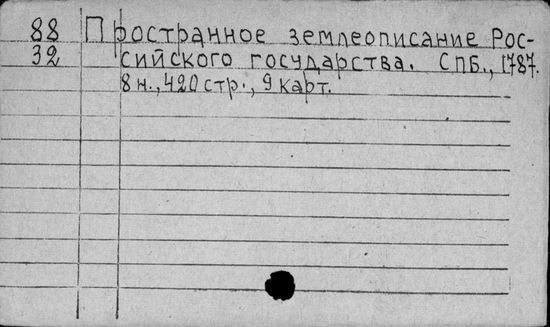 88 Пространное землеописание Рос-
32 сийского государства. СПБ., 1787.
8 н., 420 стр., 9 карт.